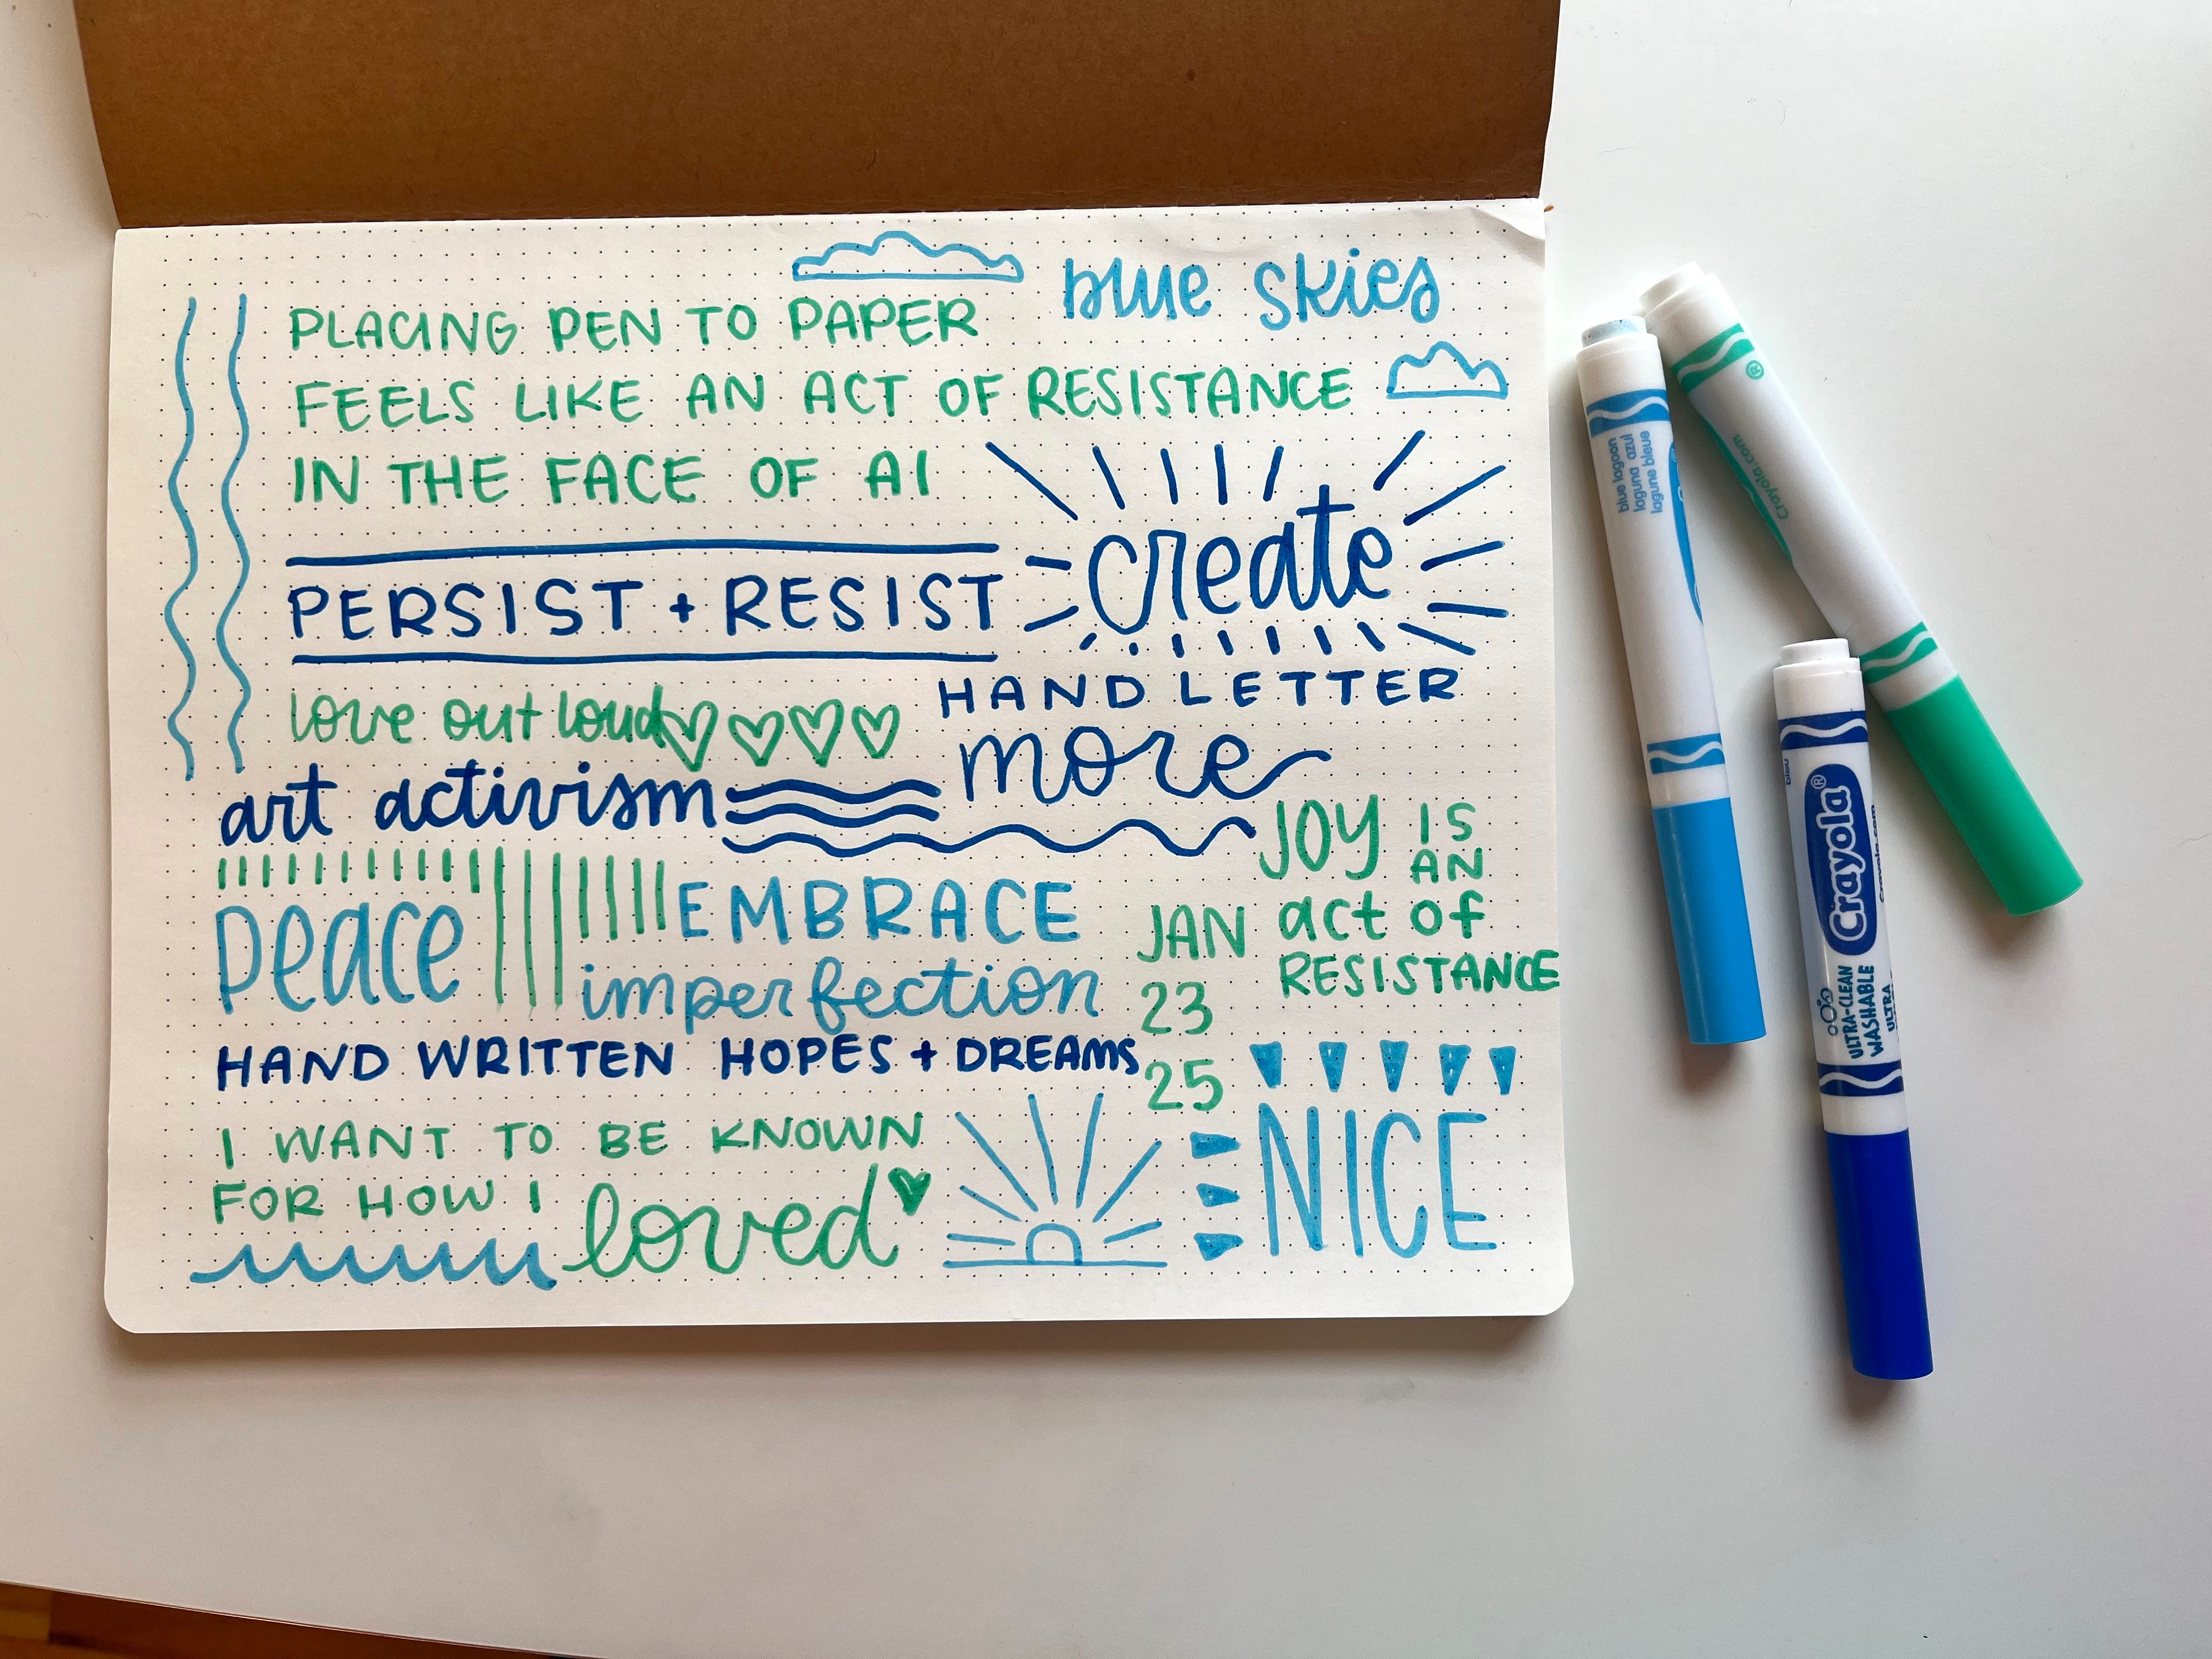 blue skies
PLACING PEN TO PAPER
FEELS LIKE AN ACT OF RESISTANCE
IN THE FACE OF AI
create
PERSIST + RESIST
HAND LETTER
more
love out loud
art activism
JOY IS
AN
act of
RESISTANCE
peace
EMBRACE
imperfection
JAN
23
25
HAND WRITTEN HOPES + DREAMS
I WANT TO BE KNOWN
FOR HOW I
loved
NICE
blue lagoon
laguna azul
lagune bleue
®
Crayola.com
bleu
Crayola®
Crayola.com
ULTRA-CLEAN
WASHABLE
ULTRA